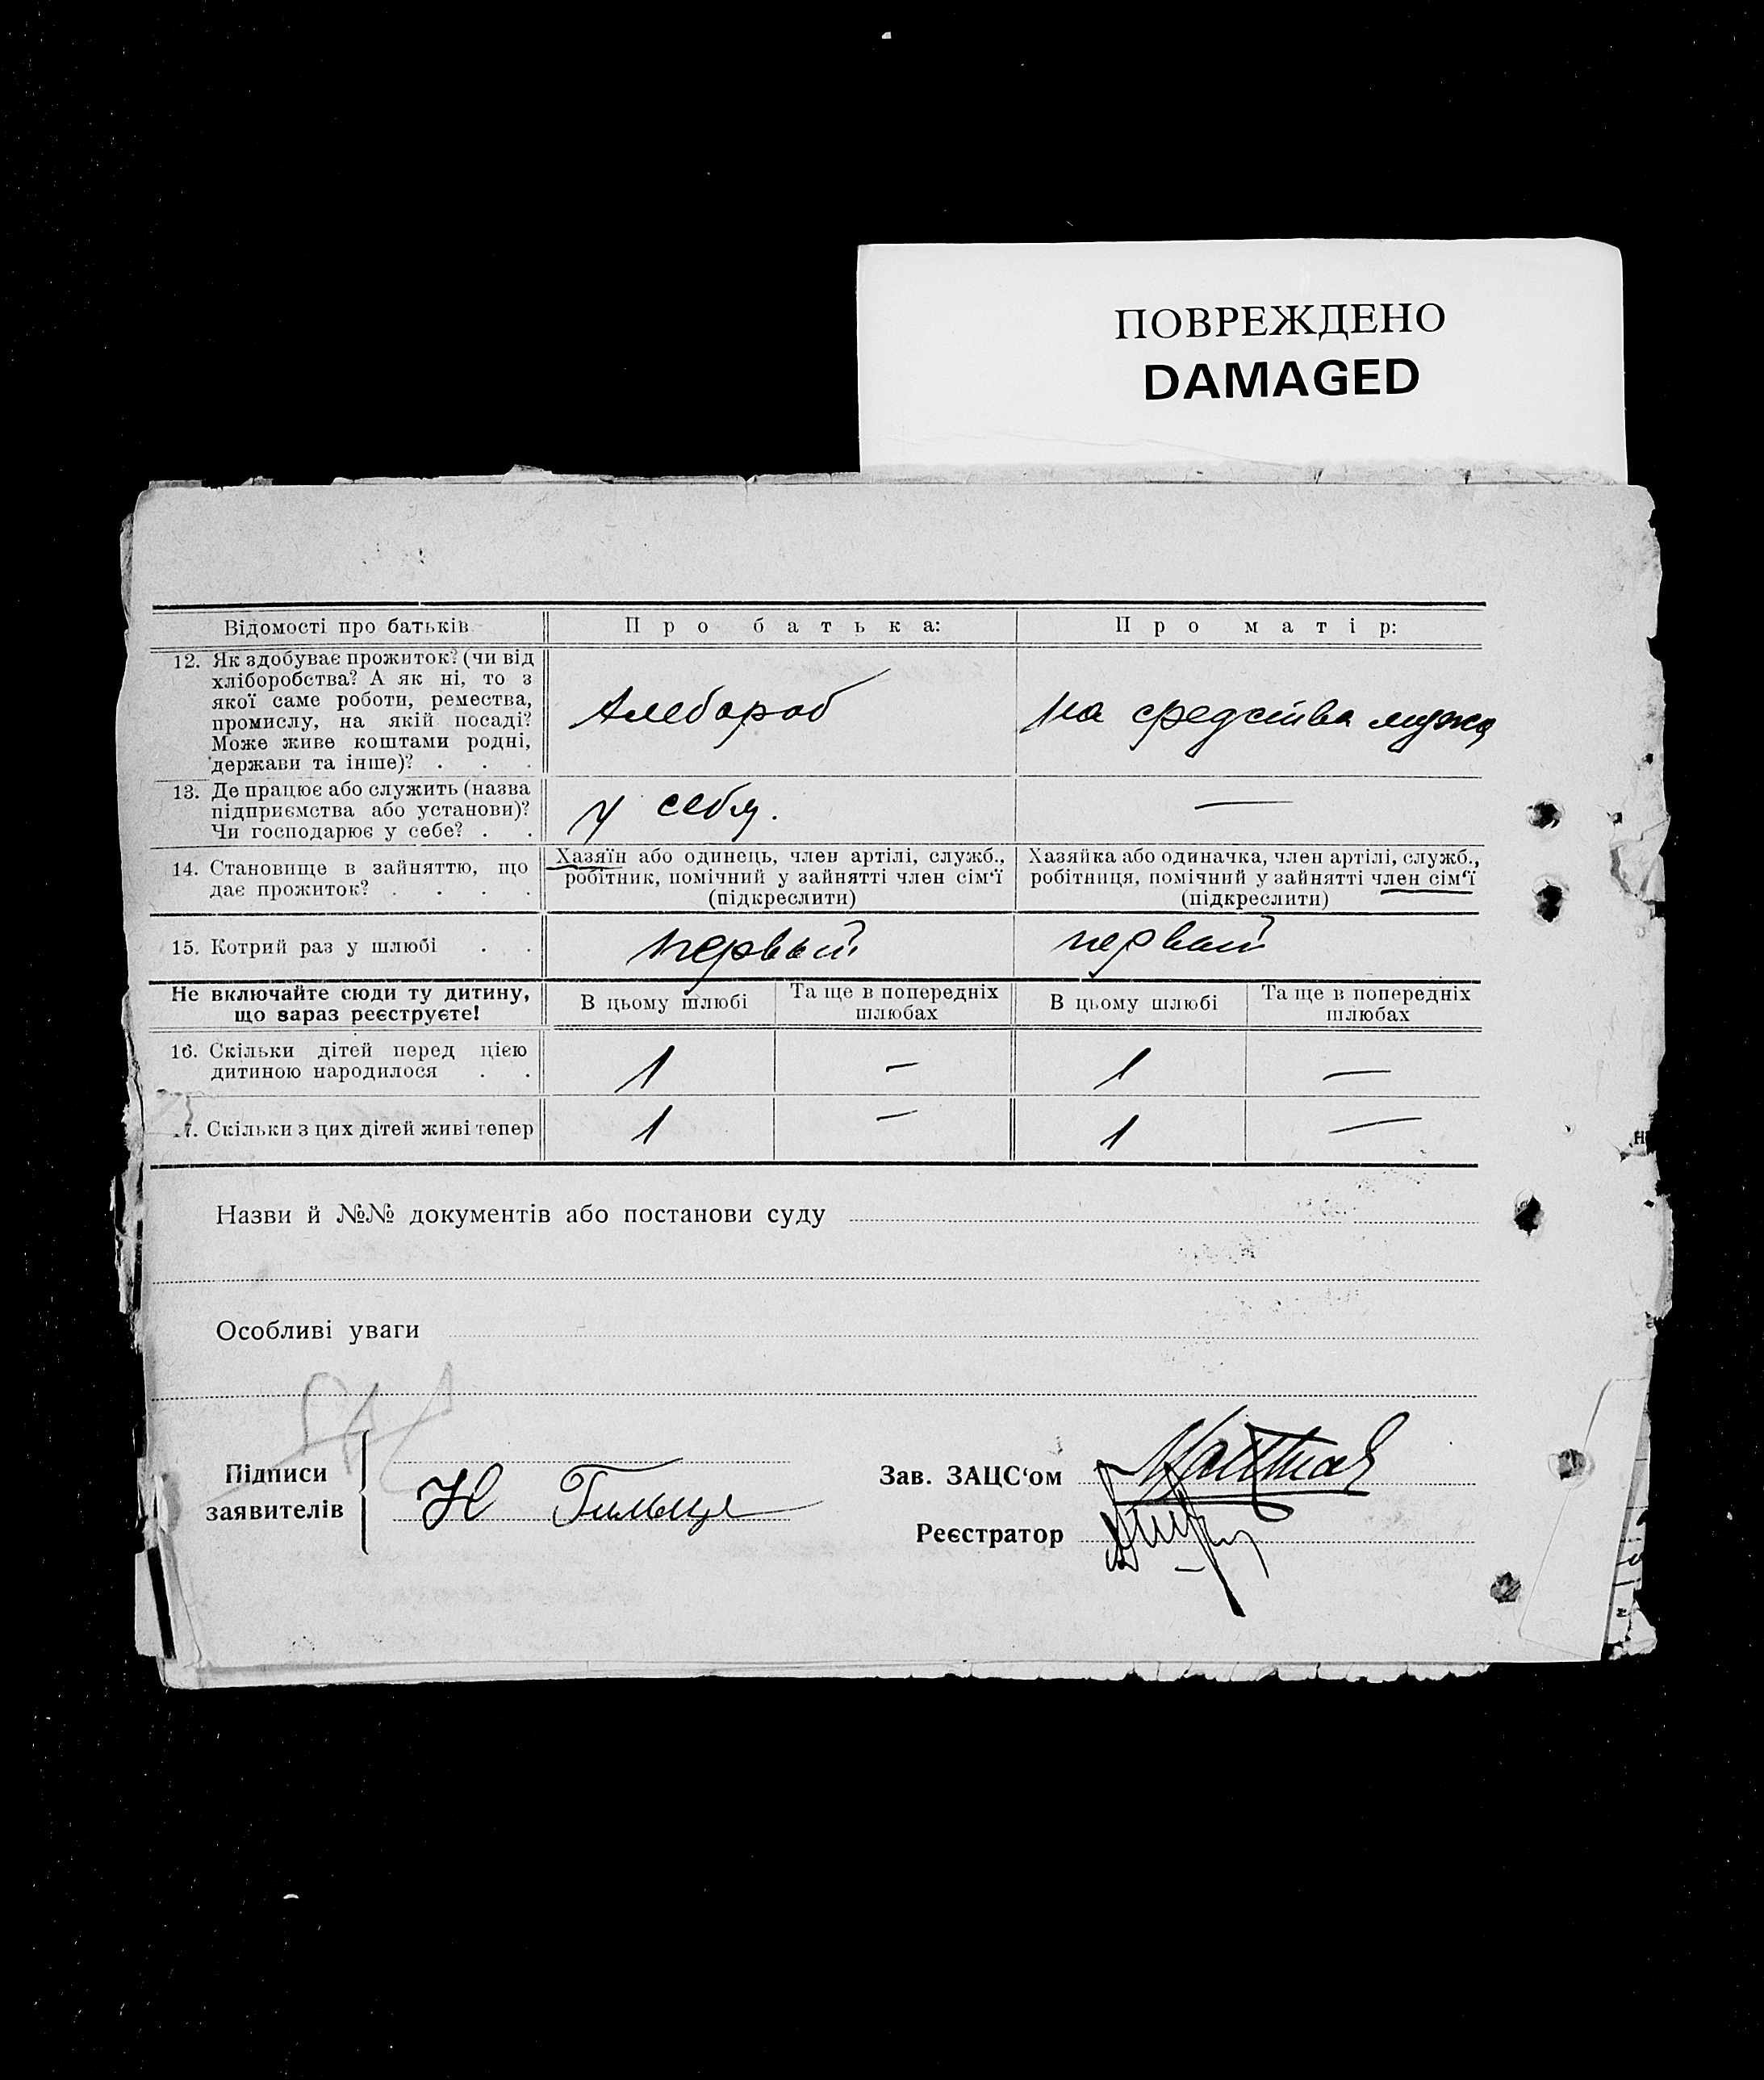 ПОВРЕЖДЕНО
DAMAGED
Відомості про батьків
Про батька:
Про матір:
12. Як здобуває прожиток? (чи від
хліборобства? А як ні, то з
якої саме роботи, ремества,
промислу, на якій посаді?
Може живе коштами родні,
держави та інше)? . . .
Хлебороб
на средства мужа
13. Де працює або служить (назва
підприємства або установи)?
Чи господарює у себе? . .
у себя.
—
14. Становище в зайняттю, що
дає прожиток? . . . .
Хазяїн або одинець, член артілі, служб.,
робітник, помічний у зайнятті член сім‘ї
(підкреслити)
Хазяйка або одиначка, член артілі, служб.,
робітниця, помічний у зайнятті член сім‘ї
(підкреслити)
15. Котрий раз у шлюбі . .
первый
первый
Не включайте сюди ту дитину,
що зараз реєструєте!
В цьому шлюбі
Та ще в попередніх
шлюбах
В цьому шлюбі
Та ще в попередніх
шлюбах
16. Скільки дітей перед цією
дитиною народилося . .
1
—
1
—
7. Скільки з цих дітей живі тепер
1
—
1
—
Назви й №№ документів або постанови суду
Особливі уваги
Підписи
заявителів
Н
Зав. ЗАЦС‘ом
Реєстратор